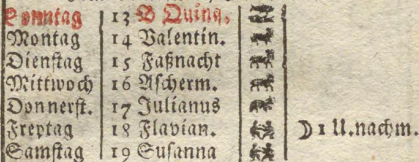 Sonntag 13 D Quinq.
Montag 14 Valentin.
Dienſtag 15 Faßnacht
Mittwoch 16 Aſcherm.
Donnerſt. 17 Julianus
Freytag 18 Flavian. ☽ 1 U. nachm.
Samſtag 19 Suſanna